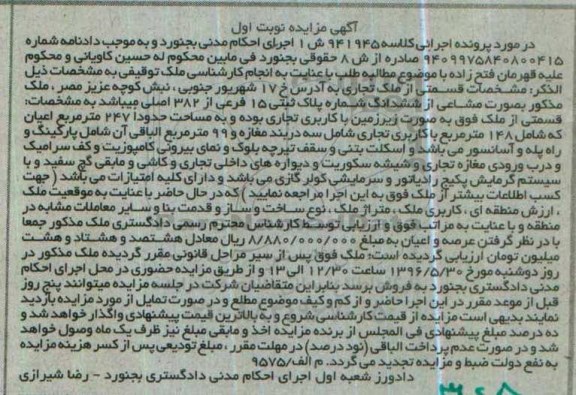 آگهی مزایده نوبت اول
در مورد پرونده اجرائی کلاسه ۹۴۱۹۴۵ ش ۱ اجرای احکام مدنی بجنورد و به موجب دادنامه شماره
۹۴۰۹۹۷۵۸۴۰۸۰۰۴۱۵ صادره از ش ۸ حقوقی بجنورد فی مابین محکوم له حسین کاویانی و محکوم
علیه قهرمان فتح زاده با موضوع مطالبه طلب با عنایت به انجام کارشناسی ملک توقیفی به مشخصات ذیل
الذکر: مشخصات قسمتی از ملک تجاری به آدرس خ ۱۷ شهریور جنوبی ، نبش کوچه عزیز مصر ، ملک
مذکور بصورت مشاعی از ششدانگ شماره پلاک ثبتی ۱۵ فرعی از ۳۸۲ اصلی میباشد به مشخصات:
قسمتی از ملک فوق به صورت زیرزمین با کاربری تجاری بوده و به مساحت حدودا ۲۴۷ مترمربع اعیان
که شامل ۱۴۸ مترمربع با کاربری تجاری شامل سه دربند مغازه و ۹۹ مترمربع الباقی آن شامل پارگینگ و
راه پله و آسانسور می باشد و اسکلت بتنی و سقف تیرچه بلوک و نمای بیرونی کامپوزیت و کف سرامیک
و درب ورودی مغازه تجاری و شیشه سکوریت و دیواره های داخلی تجاری و کاشی و مابقی گچ سفید و با
سیستم گرمایش پکیج رادیاتور و سرمایشی کولر گازی می باشد و دارای کلیه امتیازات می باشد ( جهت
کسب اطلاعات بیشتر از ملک فوق به این اجرا مراجعه نمایید ) که در حال حاضر با عنایت به موقعیت ملک
، ارزش منطقه ای ، کاربری ملک ، متراژ ملک ، نوع ساخت و ساز و قدمت بنا و سایر معاملات مشابه در
منطقه و با عنایت به مراتب فوق و ارزیابی توسط کارشناس محترم رسمی دادگستری ملک مذکور جمعا
با در نظر گرفتن عرصه و اعیان به مبلغ ۸/۸۸۰/۰۰۰/۰۰۰ ریال معادل هشتصد و هشتاد و هشت
میلیون تومان ارزیابی گردیده است؛ ملک فوق پس از سیر مراحل قانونی مقرر گردیده ملک مذکور در
روز دوشنبه مورخ ۱۳۹۶/۵/۳۰ ساعت ۱۲/۳۰ الی ۱۳ و از طریق مزایده حضوری در محل اجرای احکام
مدنی دادگستری بجنورد به فروش برسد بنابراین متقاضیان شرکت در جلسه مزایده میتوانند پنج روز
قبل از موعد مقرر در این اجرا حاضر و از کم و کیف موضوع مطلع و در صورت تمایل از مورد مزایده بازدید
نمایند بدیهی است مزایده از قیمت کارشناسی شروع و به بالاترین قیمت پیشنهادی واگذار خواهد شد و
ده درصد مبلغ پیشنهادی فی المجلس از برنده مزایده اخذ و مابقی مبلغ نیز ظرف یک ماه وصول خواهد
شد و در صورت عدم پرداخت الباقی (نود درصد) در مهلت مقرر ، مبلغ تودیعی پس از کسر هزینه مزایده
به نفع دولت ضبط و مزایده تجدید می گردد. م الف/۹۵۷۵
دادورز شعبه اول اجرای احکام مدنی دادگستری بجنورد - رضا شیرازی